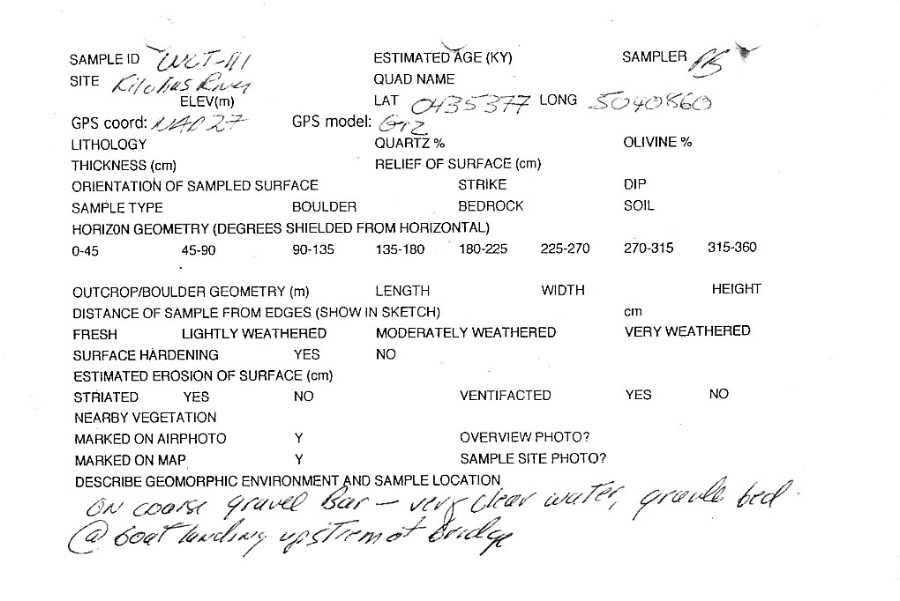 SAMPLE ID WCT-111 ESTIMATED AGE (KY) SAMPLER PB
SITE River QUAD NAME
ELEV(m) LAT 0435377 LONG 5040860
GPS coord: NAD 27 GPS model:
LITHOLOGY QUARTZ % OLIVINE %
THICKNESS (cm) RELIEF OF SURFACE (cm)
ORIENTATION OF SAMPLED SURFACE STRIKE DIP
SAMPLE TYPE BOULDER BEDROCK SOIL
HORIZON GEOMETRY (DEGREES SHIELDED FROM HORIZONTAL)
0-45 45-90 90-135 135-180 180-225 225-270 270-315 315-360
OUTCROP/BOULDER GEOMETRY (m) LENGTH WIDTH HEIGHT
DISTANCE OF SAMPLE FROM EDGES (SHOW IN SKETCH) cm
FRESH LIGHTLY WEATHERED MODERATELY WEATHERED VERY WEATHERED
SURFACE HARDENING YES NO
ESTIMATED EROSION OF SURFACE (cm)
STRIATED YES NO VENTIFACTED YES NO
NEARBY VEGETATION
MARKED ON AIRPHOTO Y OVERVIEW PHOTO?
MARKED ON MAP Y SAMPLE SITE PHOTO?
DESCRIBE GEOMORPHIC ENVIRONMENT AND SAMPLE LOCATION
ON coarse gravel Bar - very clear water, gravel bed.
@ boat landing upstrem of bridge